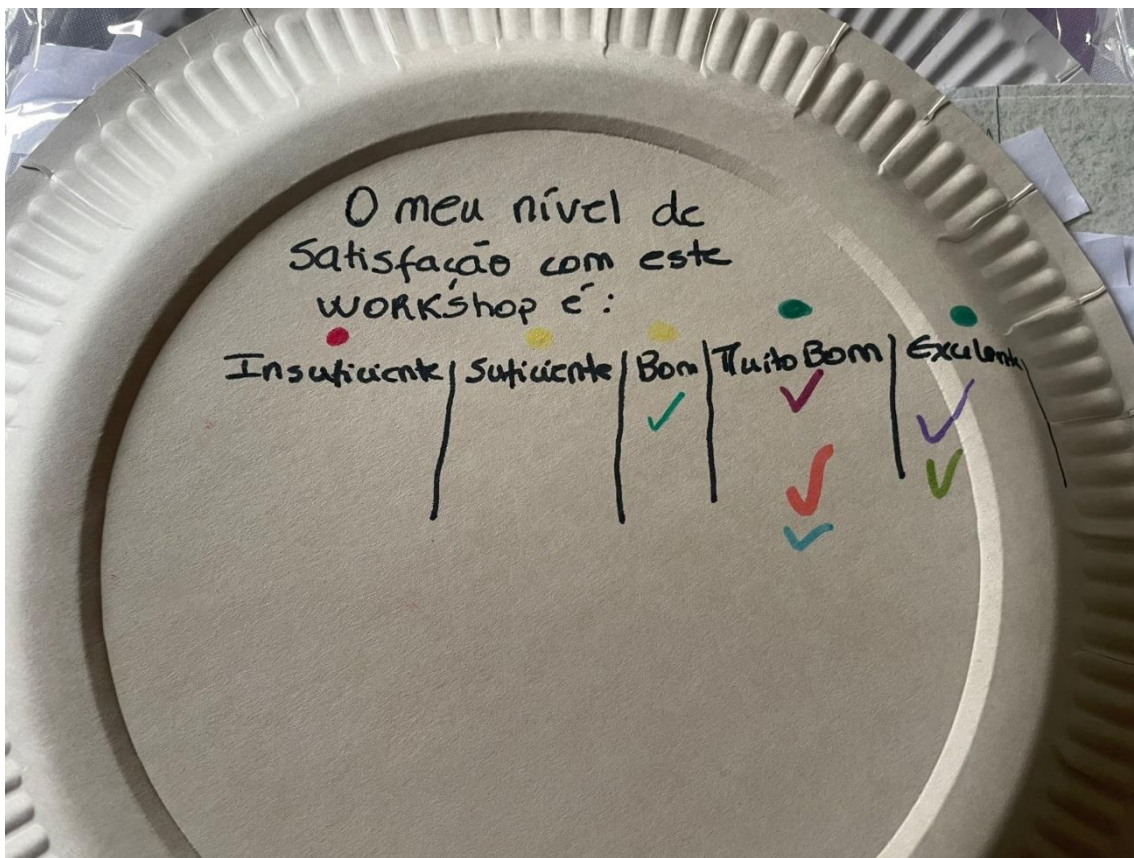 O meu nível de
Satisfação com este
WORKShop é:
Insuficiente Suficiente Bom Muito Bom Excelente